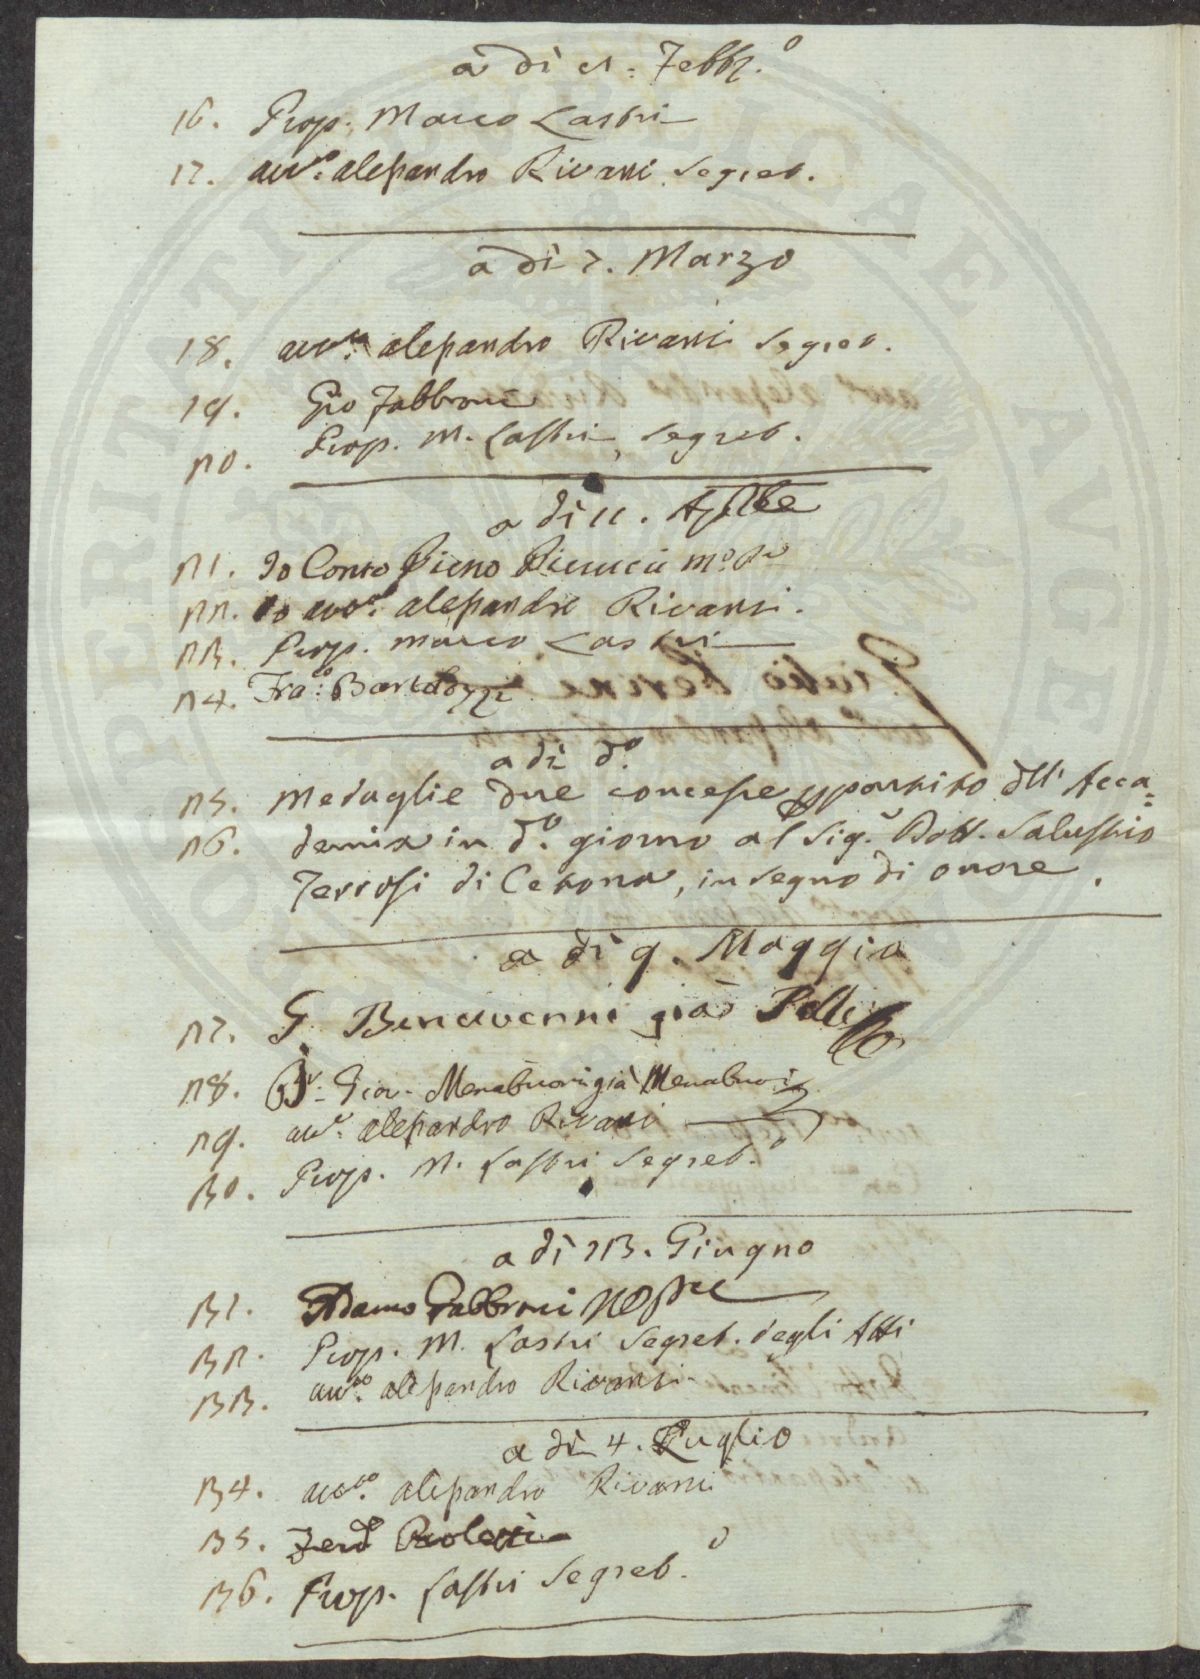 a dì 21. Febbr.o
16. Prop. Marco Lastri
17. avv.to Alessandro Rivani Segret.
a dì 7. Marzo
18. avv.to Alessandro Rivani Segret.
19. Gio Fabbroni
20. Prop. M. Lastri, Segret.
a dì 11. Aprile
21. Io Conte Pieno
22. Io avv.to Alessandro Rivani.
23. Prop. Marco Lastri
24. Fra.co Bartolozzi
a dì d.o
25. Medaglie due concesse p partito dell' Acca=
26. demia in d.o giorno al Sig.r Dott. Salustio
Terrosi di Cetona, in segno di onore.
a dì 9. Maggio
27. G. Bencivenni già Pelli
28. D.r Gio. Menabuoni già Menabuoi
29. avv.to Alessandro Rivani
30. Prop. M. Lastri Segret.o
a dì 13. Giugno
31. Adamo Fabbroni
32. Prop. M. Lastri Segret. degli Atti
33. avv.to Alessandro Rivani
a dì 4. Luglio
34. avv.to Alessandro Rivani
35. Ferd. Paoletti
36. Prop. Lastri Segret.o
PROSPERITATI PUBLICAE AUGENDAE